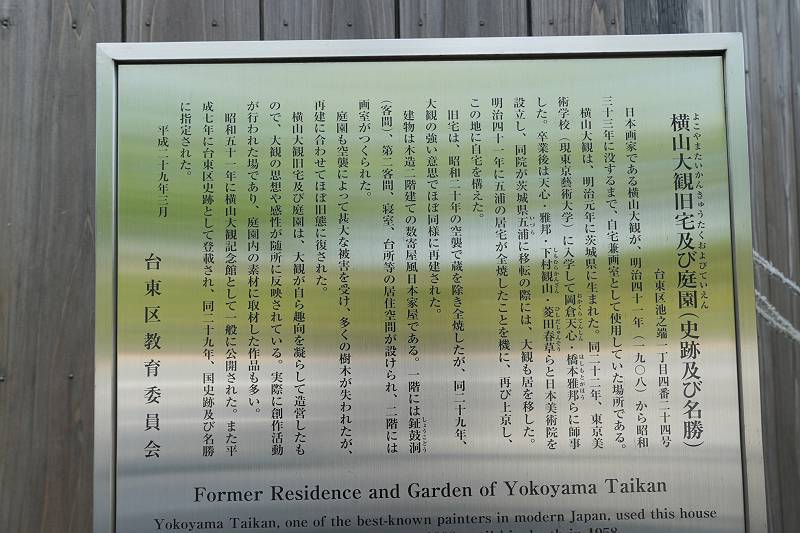 横山大観旧宅及び庭園(史跡及び名勝)
よこやまたいかんきゅうたくおよびていえん
台東区池之端一丁目四番二十四号
日本画家である横山大観が、明治四十一年(一九〇八)から昭和
三十三年に没するまで、自宅兼画室として使用していた場所である。
横山大観は、明治元年に茨城県に生まれた。同二十二年、東京美
術学校(現東京藝術大学)に入学して岡倉天心・橋本雅邦らに師事
おかくらてんしん はしもとがほう
した。卒業後は天心・雅邦・下村観山・菱田春草らと日本美術院を
しもむらかんざん ひしだしゅんそう
設立し、同院が茨城県五浦に移転の際には、大観も居を移した。
いづら
明治四十一年に五浦の居宅が全焼したことを機に、再び上京し、
この地に自宅を構えた。
旧宅は、昭和二十年の空襲で蔵を除き全焼したが、同二十九年、
大観の強い意思でほぼ同様に再建された。
建物は木造二階建ての数寄屋風日本家屋である。一階には鉦鼓洞
しょうこどう
(客間)、第二客間、寝室、台所等の居住空間が設けられ、二階には
画室がつくられた。
庭園も空襲によって甚大な被害を受け、多くの樹木が失われたが、
再建に合わせてほぼ旧態に復された。
横山大観旧宅及び庭園は、大観が自ら趣向を凝らして造営したも
ので、大観の思想や感性が随所に反映されている。実際に創作活動
が行われた場であり、庭園内の素材に取材した作品も多い。
昭和五十一年に横山大観記念館として一般に公開された。また平
成七年に台東区史跡として登載され、同二十九年、国史跡及び名勝
に指定された。
平成二十九年三月
台東区教育委員会
Former Residence and Garden of Yokoyama Taikan
Yokoyama Taikan, one of the best-known painters in modern Japan, used this house
in 1958